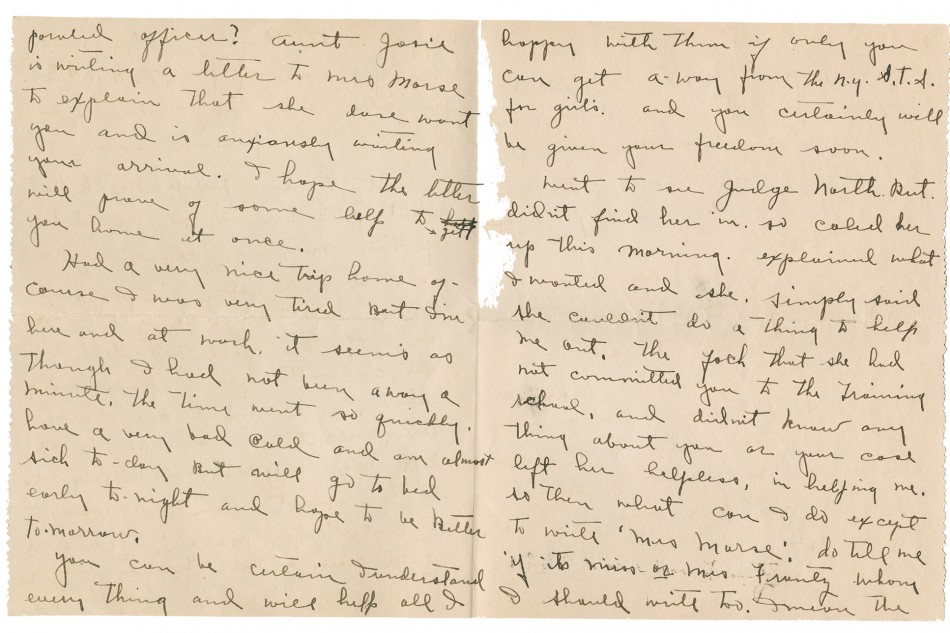 powled officer? Aunt Josie
is writing a letter to Mrs Morse
to explain that she dose want
you and is anxiously waiting
your arrival. I hope the letter
will prove of some help to gett
you home at once.
Had a very nice trip home of-
course I was very tired But I'm
here and at work, it seems as
though I had not been away a
minute. The time went so quickly.
have a very bad cold and am almost
sick to-day But will go to bed
early to-night and hope to be Better
to-morrow.
You can be certain I understand
every thing and will help all I
happy with them if only you
can get a-way from the N.Y. S.T.S.
for girls. and you certainly will
be given your freedom soon.
Went to see Judge North. But.
didn't find her in. so called her
up this morning. explained what
I wanted and she. simply said
she couldn't do a thing to help
me out. the fach that she had
not committed you to the Training
school, and didn't know any
thing about you or your case
left her helpless, in helping me.
so then what can I do except
to write "Mrs Morse". do tell me
if its miss or Mrs Frantz whom
I should write too. I mean the